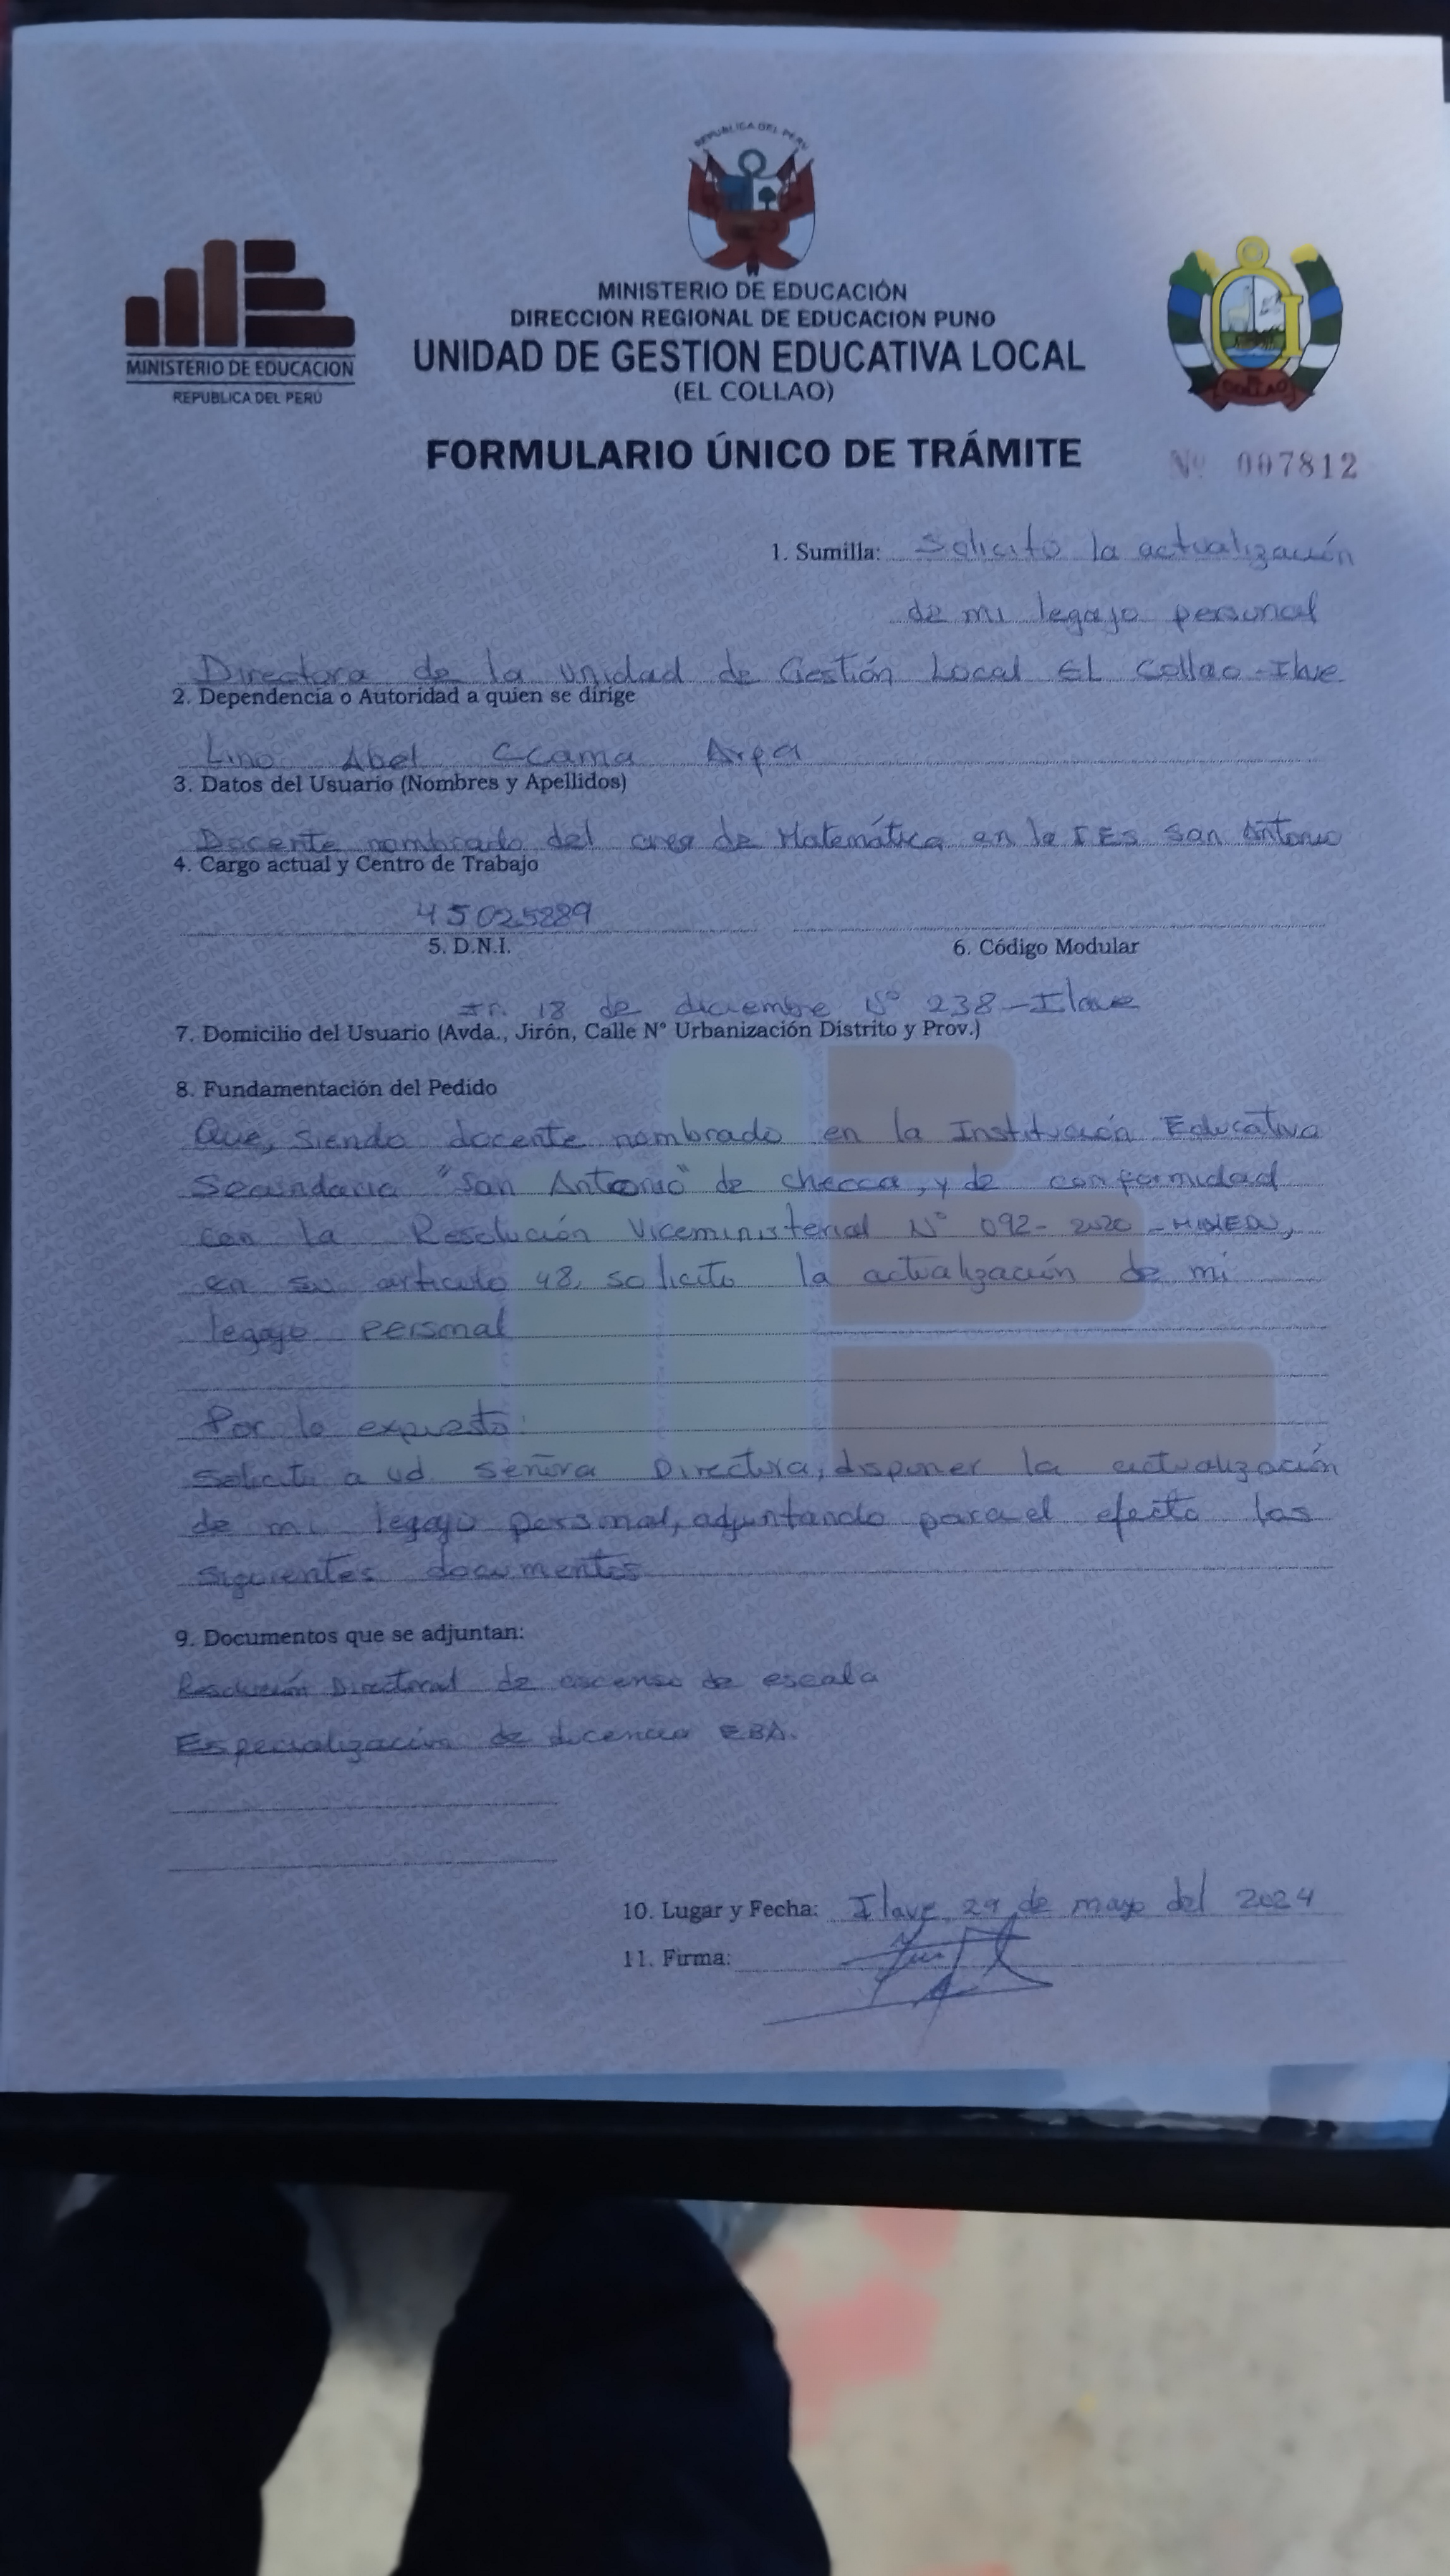 REPUBLICA DEL PERÚ
MINISTERIO DE EDUCACIÓN
DIRECCION REGIONAL DE EDUCACION PUNO
UNIDAD DE GESTION EDUCATIVA LOCAL
(EL COLLAO)
MINISTERIO DE EDUCACION
REPUBLICA DEL PERÚ
COLLAO
FORMULARIO ÚNICO DE TRÁMITE
Nº 007812
1. Sumilla: Solicito la actualización
de mi legajo personal
Directora de la unidad de Gestión Local EL Collao - Ilave
2. Dependencia o Autoridad a quien se dirige
Lino Abel Ccama Arpa
3. Datos del Usuario (Nombres y Apellidos)
Docente nombrado del area de Matemática en la IES San Antonio
4. Cargo actual y Centro de Trabajo
5. D.N.I.
6. Código Modular
Jr. 18 de diciembre Nº 238 - Ilave
7. Domicilio del Usuario (Avda., Jirón, Calle Nº Urbanización Distrito y Prov.)
8. Fundamentación del Pedido
Que, siendo docente nombrado en la Institución Educativa
Secundaria "San Antonio" de checca, y de conformidad
con la Resolución Viceministerial Nº 092- 2020 - MINEDU,
en su articulo 48, solicito la actualización de mi
legajo personal
Por lo expuesto:
Solicito a ud. Señora Directora, disponer la actualización
de mi legajo personal, adjuntando para el efecto los
siguientes documentos
9. Documentos que se adjuntan:
Resolución Directoral de ascenso de escala
Especialización de docencia EBA.
10. Lugar y Fecha: Ilave, 29 de mayo del 2024
11. Firma: